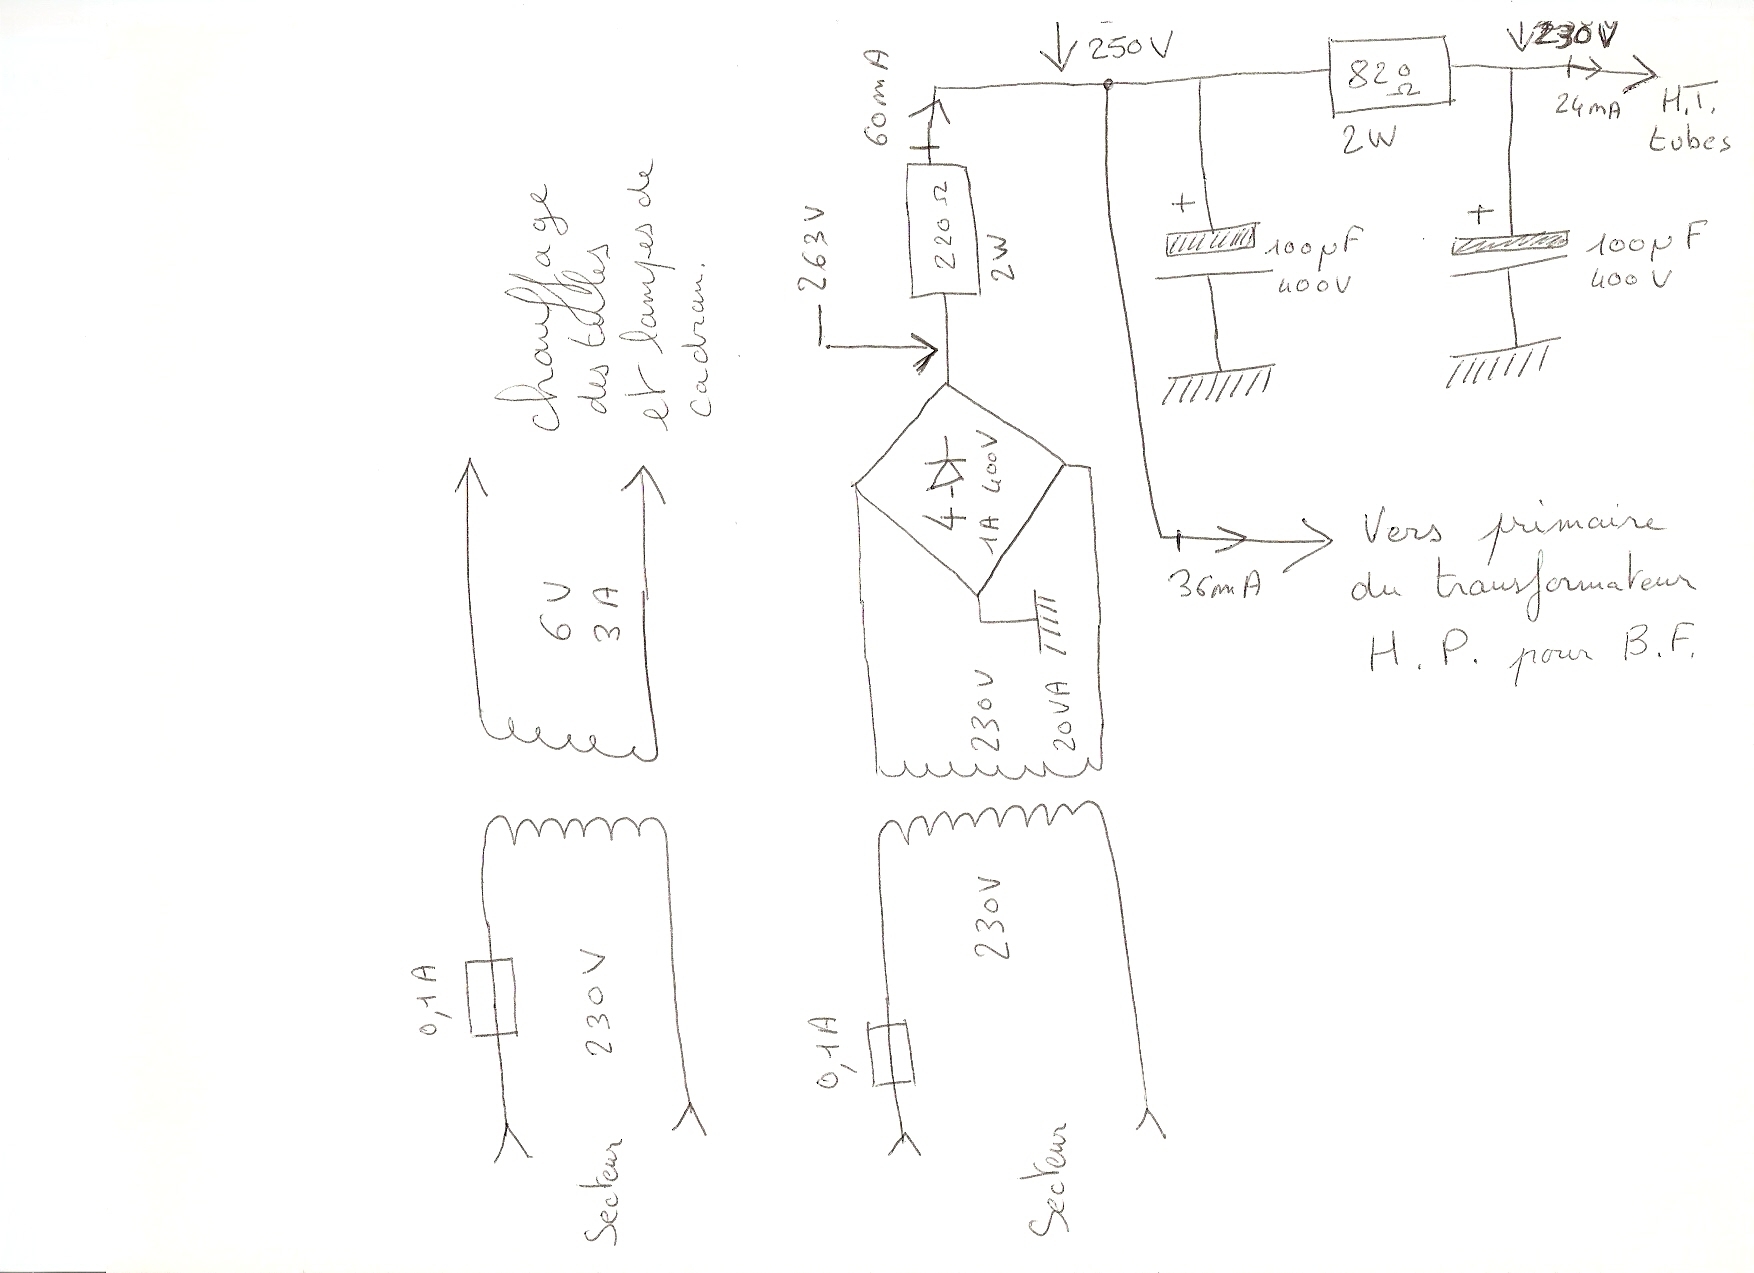 250V
230V
60mA
820
Ω
2W
24mA
H.T.
tubes
263V
220Ω
2W
+
100µF
400V
+
100µF
400V
chauffage
des tubes
et lampes de
cadran.
4
1A 400V
6V
3A
36mA
Vers primaire
du transformateur
H.P. pour B.F.
230V
20VA
0,1A
230V
Secteur
0,1A
230V
Secteur